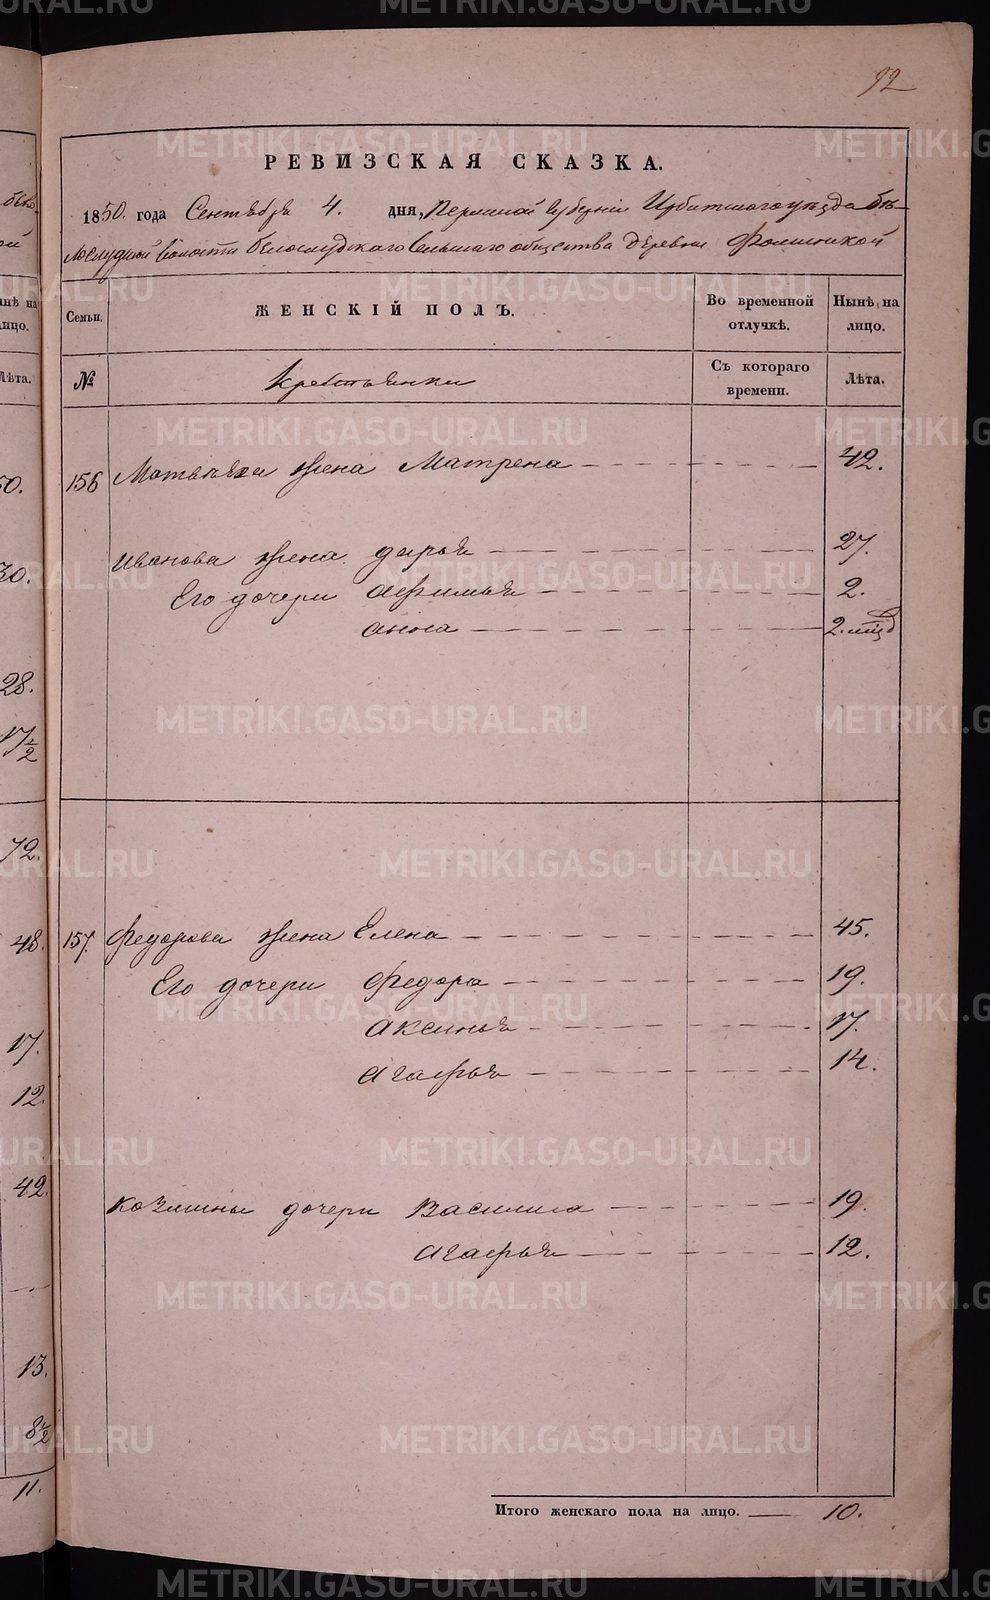 92
РЕВИЗСКАЯ СКАЗКА.
1850. года Сентября 4. дня, Пермской губернiи Ирбитскаго уѣзда Бѣ-
лослудской волости Белослудскаго сельскаго общества деревни Фоминской
Семьи. ЖЕНСКІЙ ПОЛЪ. Во временной отлучкѣ. Нынѣ на лицо.
№ Крестьянки Съ котораго времени. Лѣта.
156 Матвѣева жена Матрена 42.
Иванова жена Дарья 27.
Его дочери Афимья 2.
Анна 2. мѣсяц
157. Федорова жена Елена 45.
Его дочери Федора 19.
Аксинья 17.
Агафья 14.
Козмины дочери Василиса 19.
Агафья 12.
Итого женскаго пола на лицо. 10.
50.
30.
28.
17½
72.
48.
17.
12.
42.
13.
8½
11.
METRIKI.GASO-URAL.RU